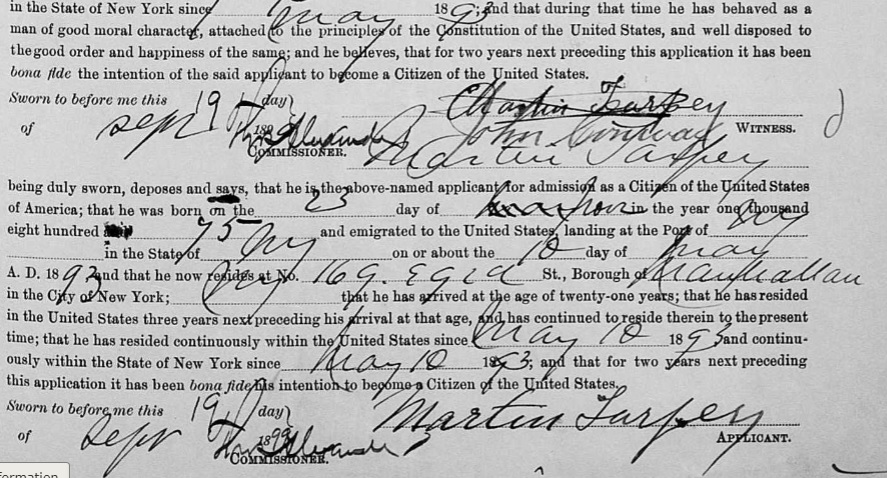 in the State of New York since May 1893; and that during that time he has behaved as a
man of good moral character, attached to the principles of the Constitution of the United States, and well disposed to
the good order and happiness of the same; and he believes, that for two years next preceding this application it has been
bona fide the intention of the said applicant to become a Citizen of the United States.
Sworn to before me this 19 day Martin Tarpey
of Sept 1899 Alexander John Conway WITNESS.
COMMISSIONER. Martin Tarpey
being duly sworn, deposes and says, that he is the above-named applicant for admission as a Citizen of the United States
of America; that he was born on the 23 day of in the year one thousand
eight hundred 75 and emigrated to the United States, landing at the Port of NY
in the State of NY on or about the 10 day of May
A. D. 1893 and that he now resides at No. 169 E 91 St., Borough of Manhattan
in the City of New York; that he has arrived at the age of twenty-one years; that he has resided
in the United States three years next preceding his arrival at that age, and has continued to reside therein to the present
time; that he has resided continuously within the United States since May 10 1893 and continu-
ously within the State of New York since May 10 1893; and that for two years next preceding
this application it has been bona fide his intention to become a Citizen of the United States.
Sworn to before me this 19 day Martin Tarpey
of Sept 1899 Alexander APPLICANT.
COMMISSIONER.
formation